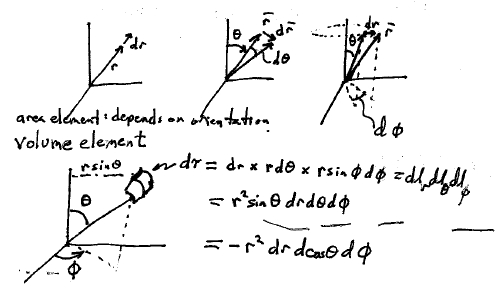 r dr
θ r̄ dr̄ dθ
θ dr̄ r̄ dφ
area element: depends on orientation
Volume element
r sinθ
θ
φ
dτ = dr × r dθ × r sin φ dφ = dl_r dl_θ dl_φ
= r² sinθ dr dθ dφ
= -r² dr dcosθ dφ